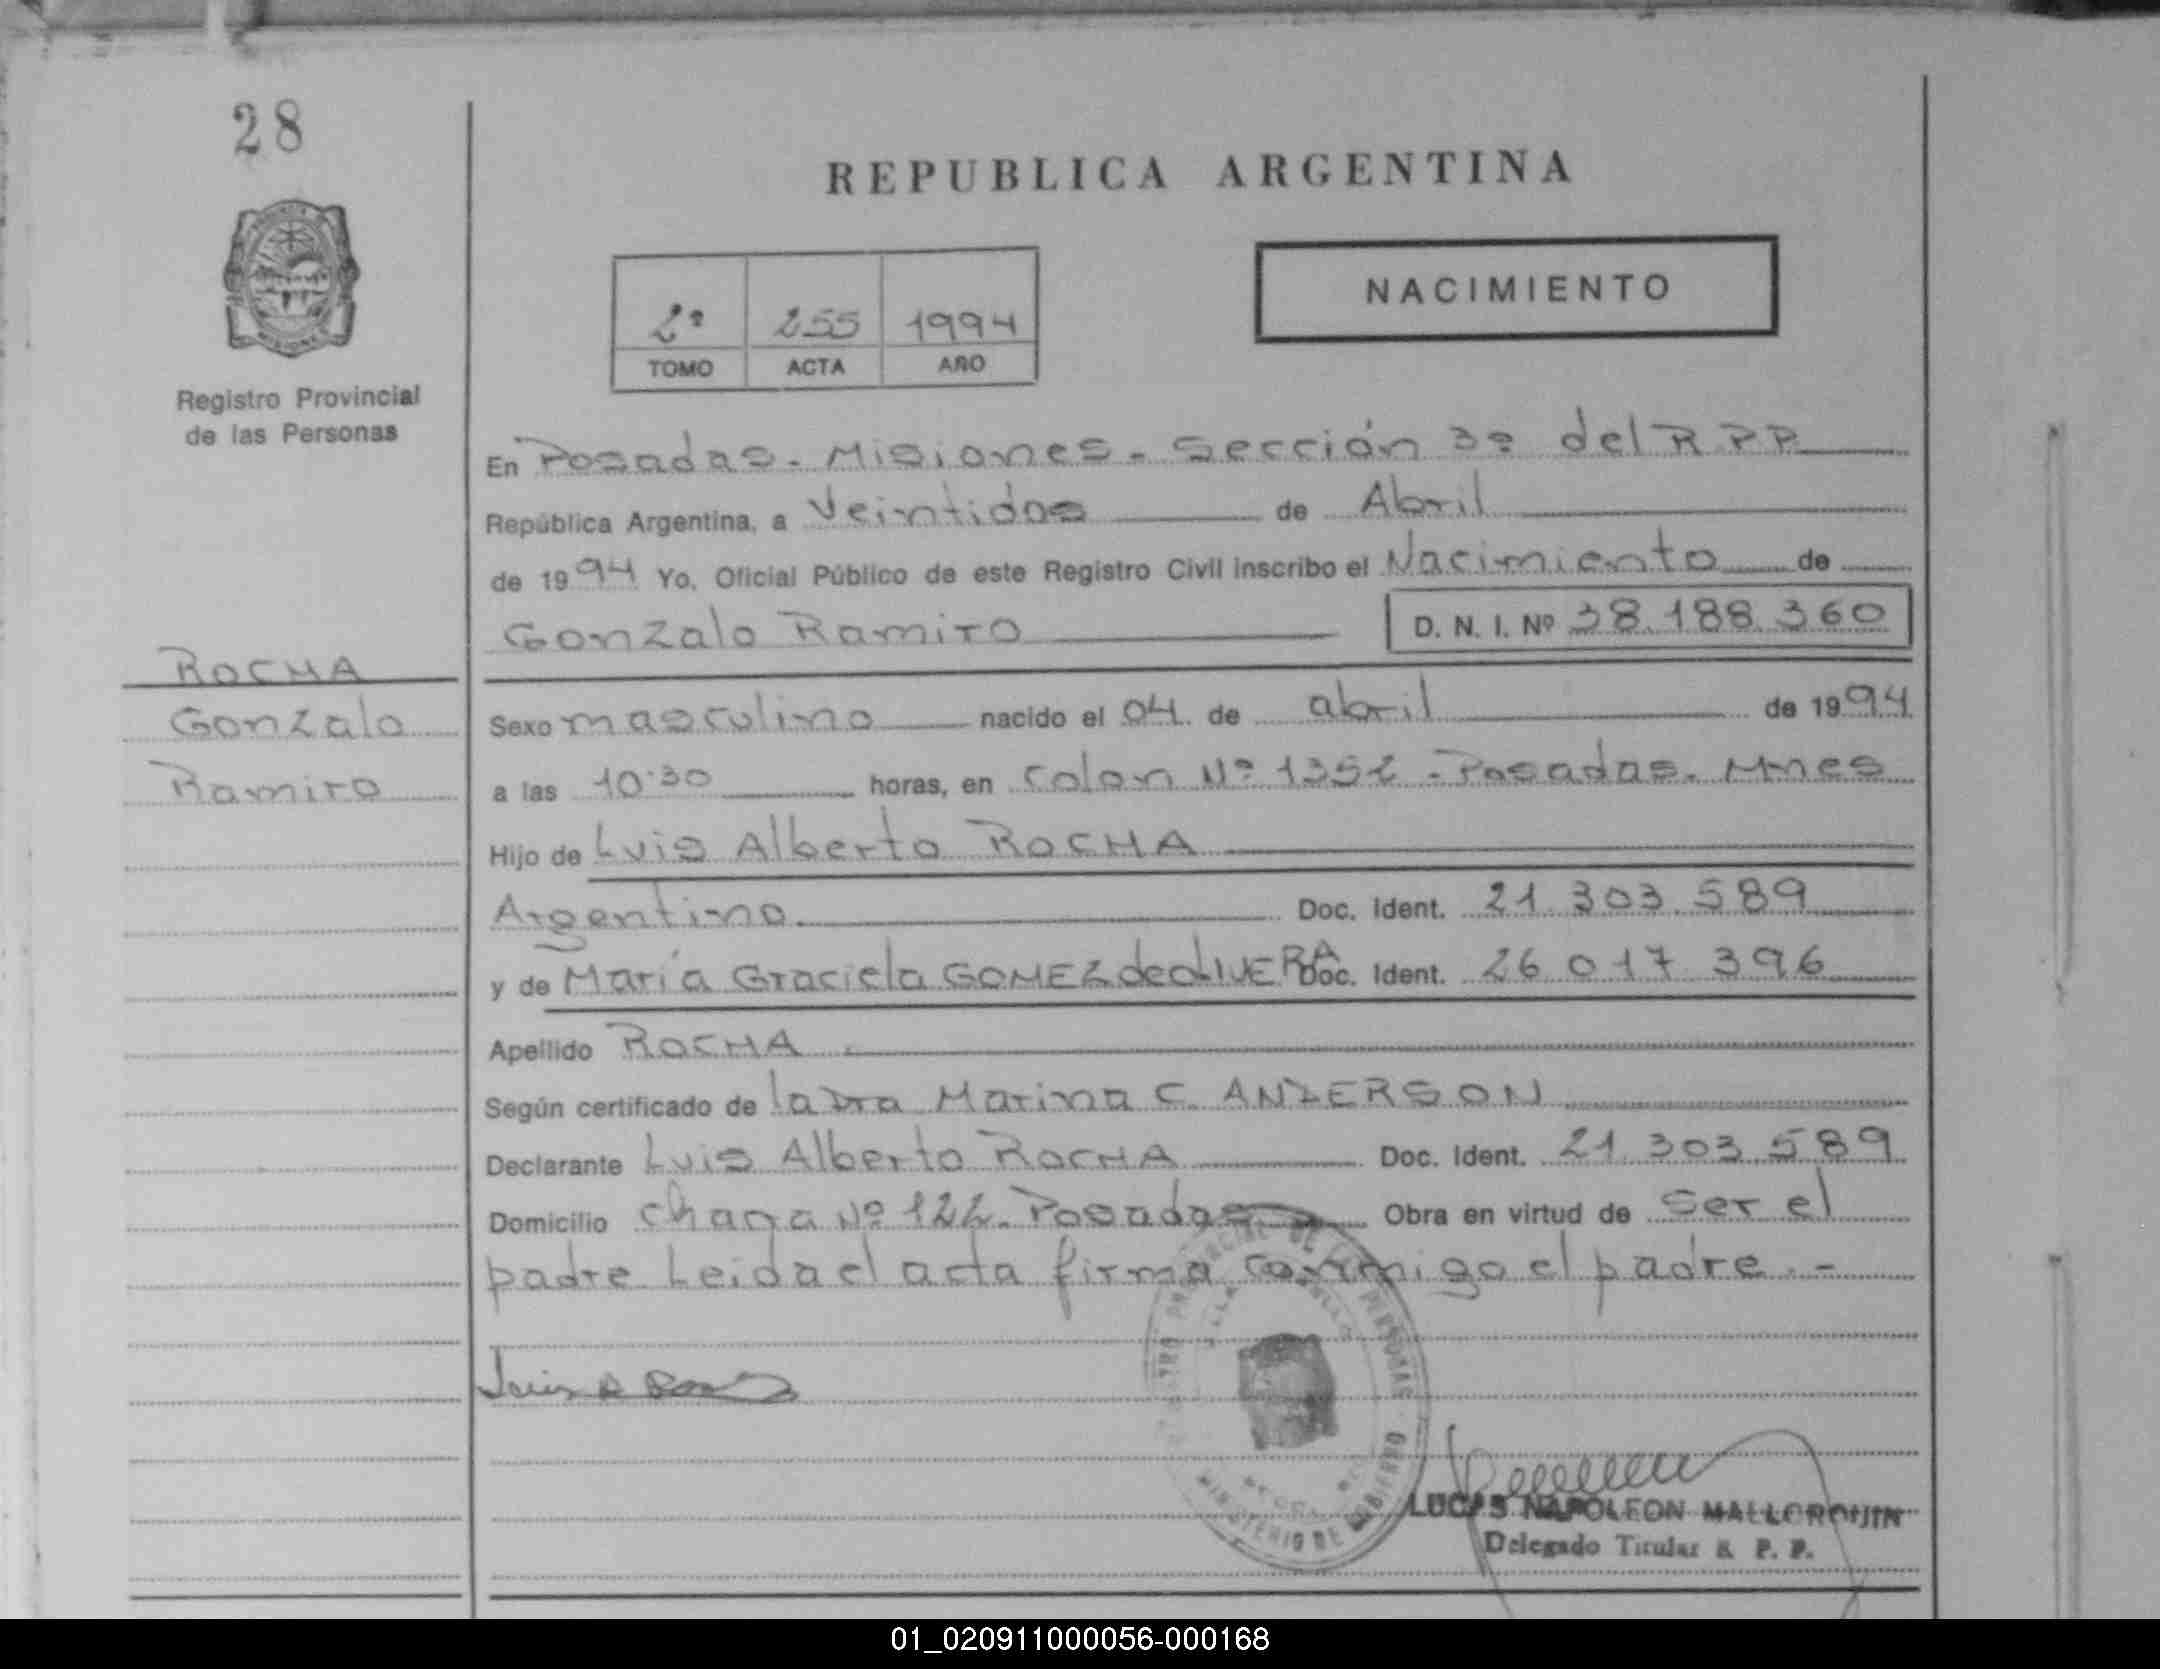 28
REPUBLICA ARGENTINA
NACIMIENTO
2º 255 1994
TOMO ACTA AÑO
Registro Provincial
de las Personas
En Posadas - Misiones - Sección 3º del R.P.P.
República Argentina, a Veintidos de Abril
de 1994 Yo, Oficial Público de este Registro Civil inscribo el Nacimiento de
Gonzalo Ramiro D. N. I. Nº 38.188.360
ROCHA
Gonzalo
Ramiro
Sexo masculino nacido el 04 de abril de 1994
a las 10:30 horas, en Colon Nº 1352 - Posadas - Mnes
Hijo de Luis Alberto ROCHA
Argentino Doc. Ident. 21.303.589
y de María Graciela GOMEZ de OLIVERA Doc. Ident. 26 017 396
Apellido ROCHA
Según certificado de la Dra Marina C. ANDERSON
Declarante Luis Alberto ROCHA Doc. Ident. 21.303.589
Domicilio Nº 122 - Posadas Obra en virtud de ser el
padre Leida el acta firma conmigo el padre . -
REGISTRO PROVINCIAL DE LAS PERSONAS
MINISTERIO DE GOBIERNO
LUCAS NAPOLEON MALLORQUIN
Delegado Titular R. P. P.
01_020911000056-000168